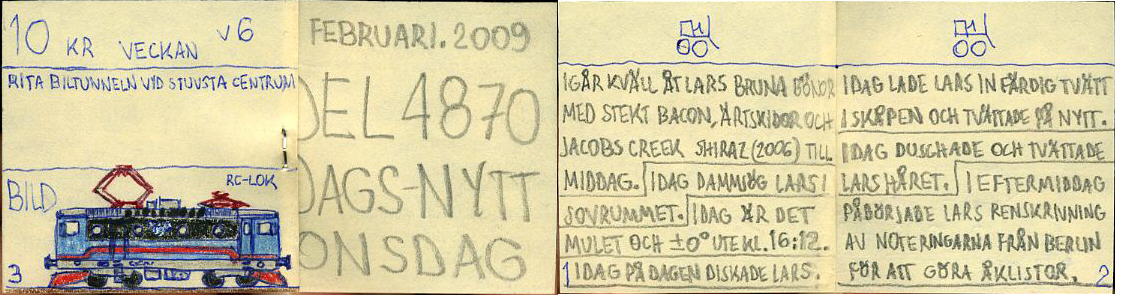 10 KR VECKAN V6
RITA BILTUNNELN VID STUVSTA CENTRUM
BILD
RC-LOK
3
FEBRUARI. 2009
DEL 4870
DAGS-NYTT
ONSDAG
IGÅR KVÄLL ÅT LARS BRUNA BÖNOR
MED STEKT BACON, ÄRTSKIDOR OCH
JACOBS CREEK SHIRAZ (2006) TILL
MIDDAG. IDAG DAMMSÖG LARS I
SOVRUMMET. IDAG ÄR DET
MULET OCH ±0° UTE KL. 16:12.
1 IDAG PÅ DAGEN DISKADE LARS.
IDAG LADE LARS IN FÄRDIG TVÄTT
I SKÅPEN OCH TVÄTTADE PÅ NYTT.
IDAG DUSCHADE OCH TVÄTTADE
LARS HÅRET. I EFTERMIDDAG
PÅBÖRJADE LARS RENSKRIVNING
AV NOTERINGARNA FRÅN BERLIN
FÖR ATT GÖRA ÅKLISTOR. 2